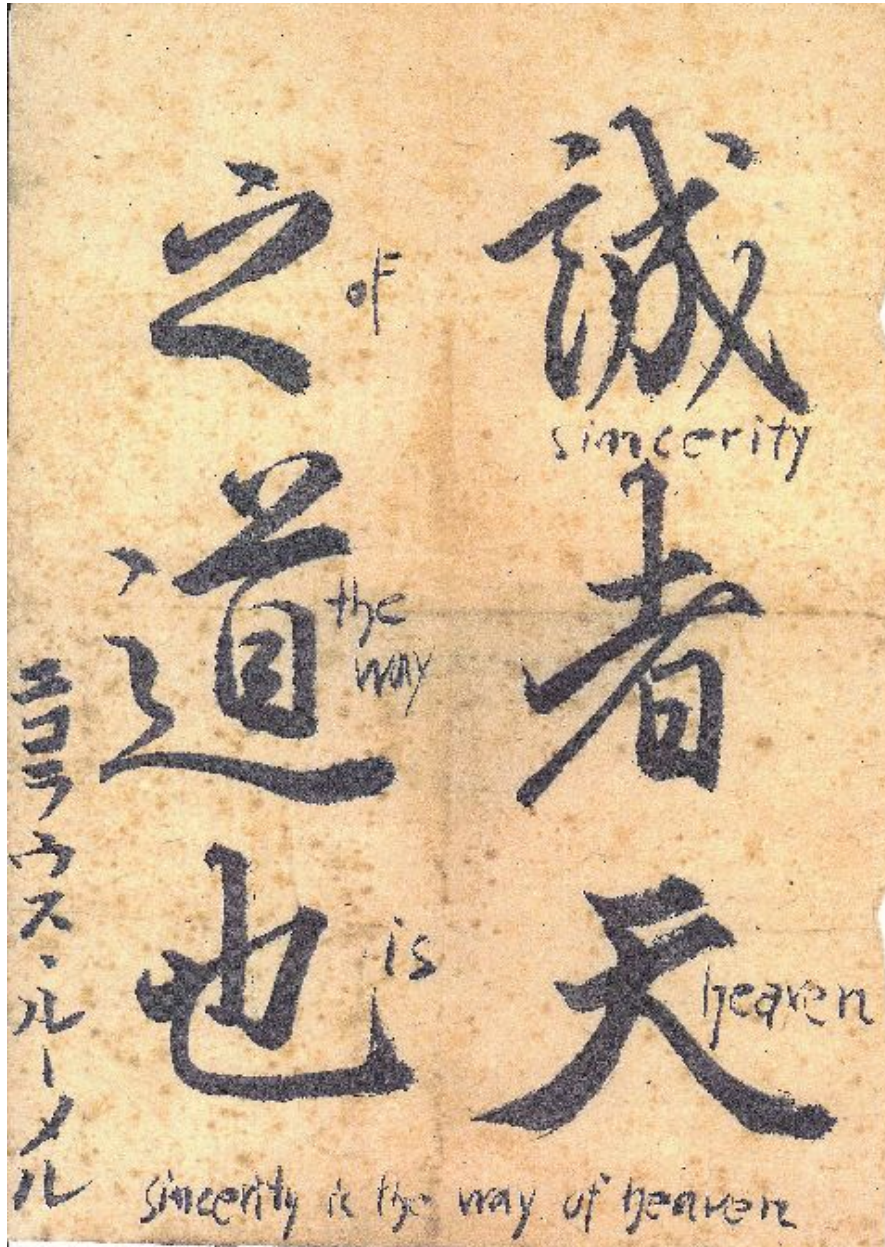 誠者天
之道也
sincerity
heaven
of
the
way
is
エコラウス・ルーメル
sincerity is the way of heaven